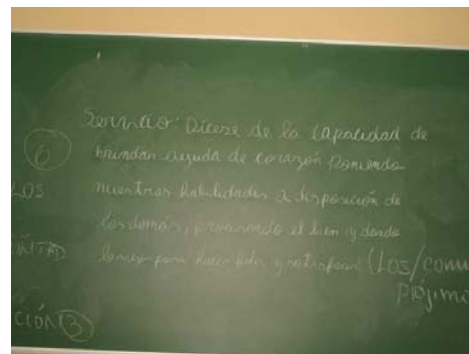 Servicio: Dícese de la capacidad de
6 brindar ayuda de corazón poniendo
LOS nuestras habilidades a disposición de
los demás, procurando el bien y dando
lo mejor para hacer y satisfacer (LOS/
CIÓN 3